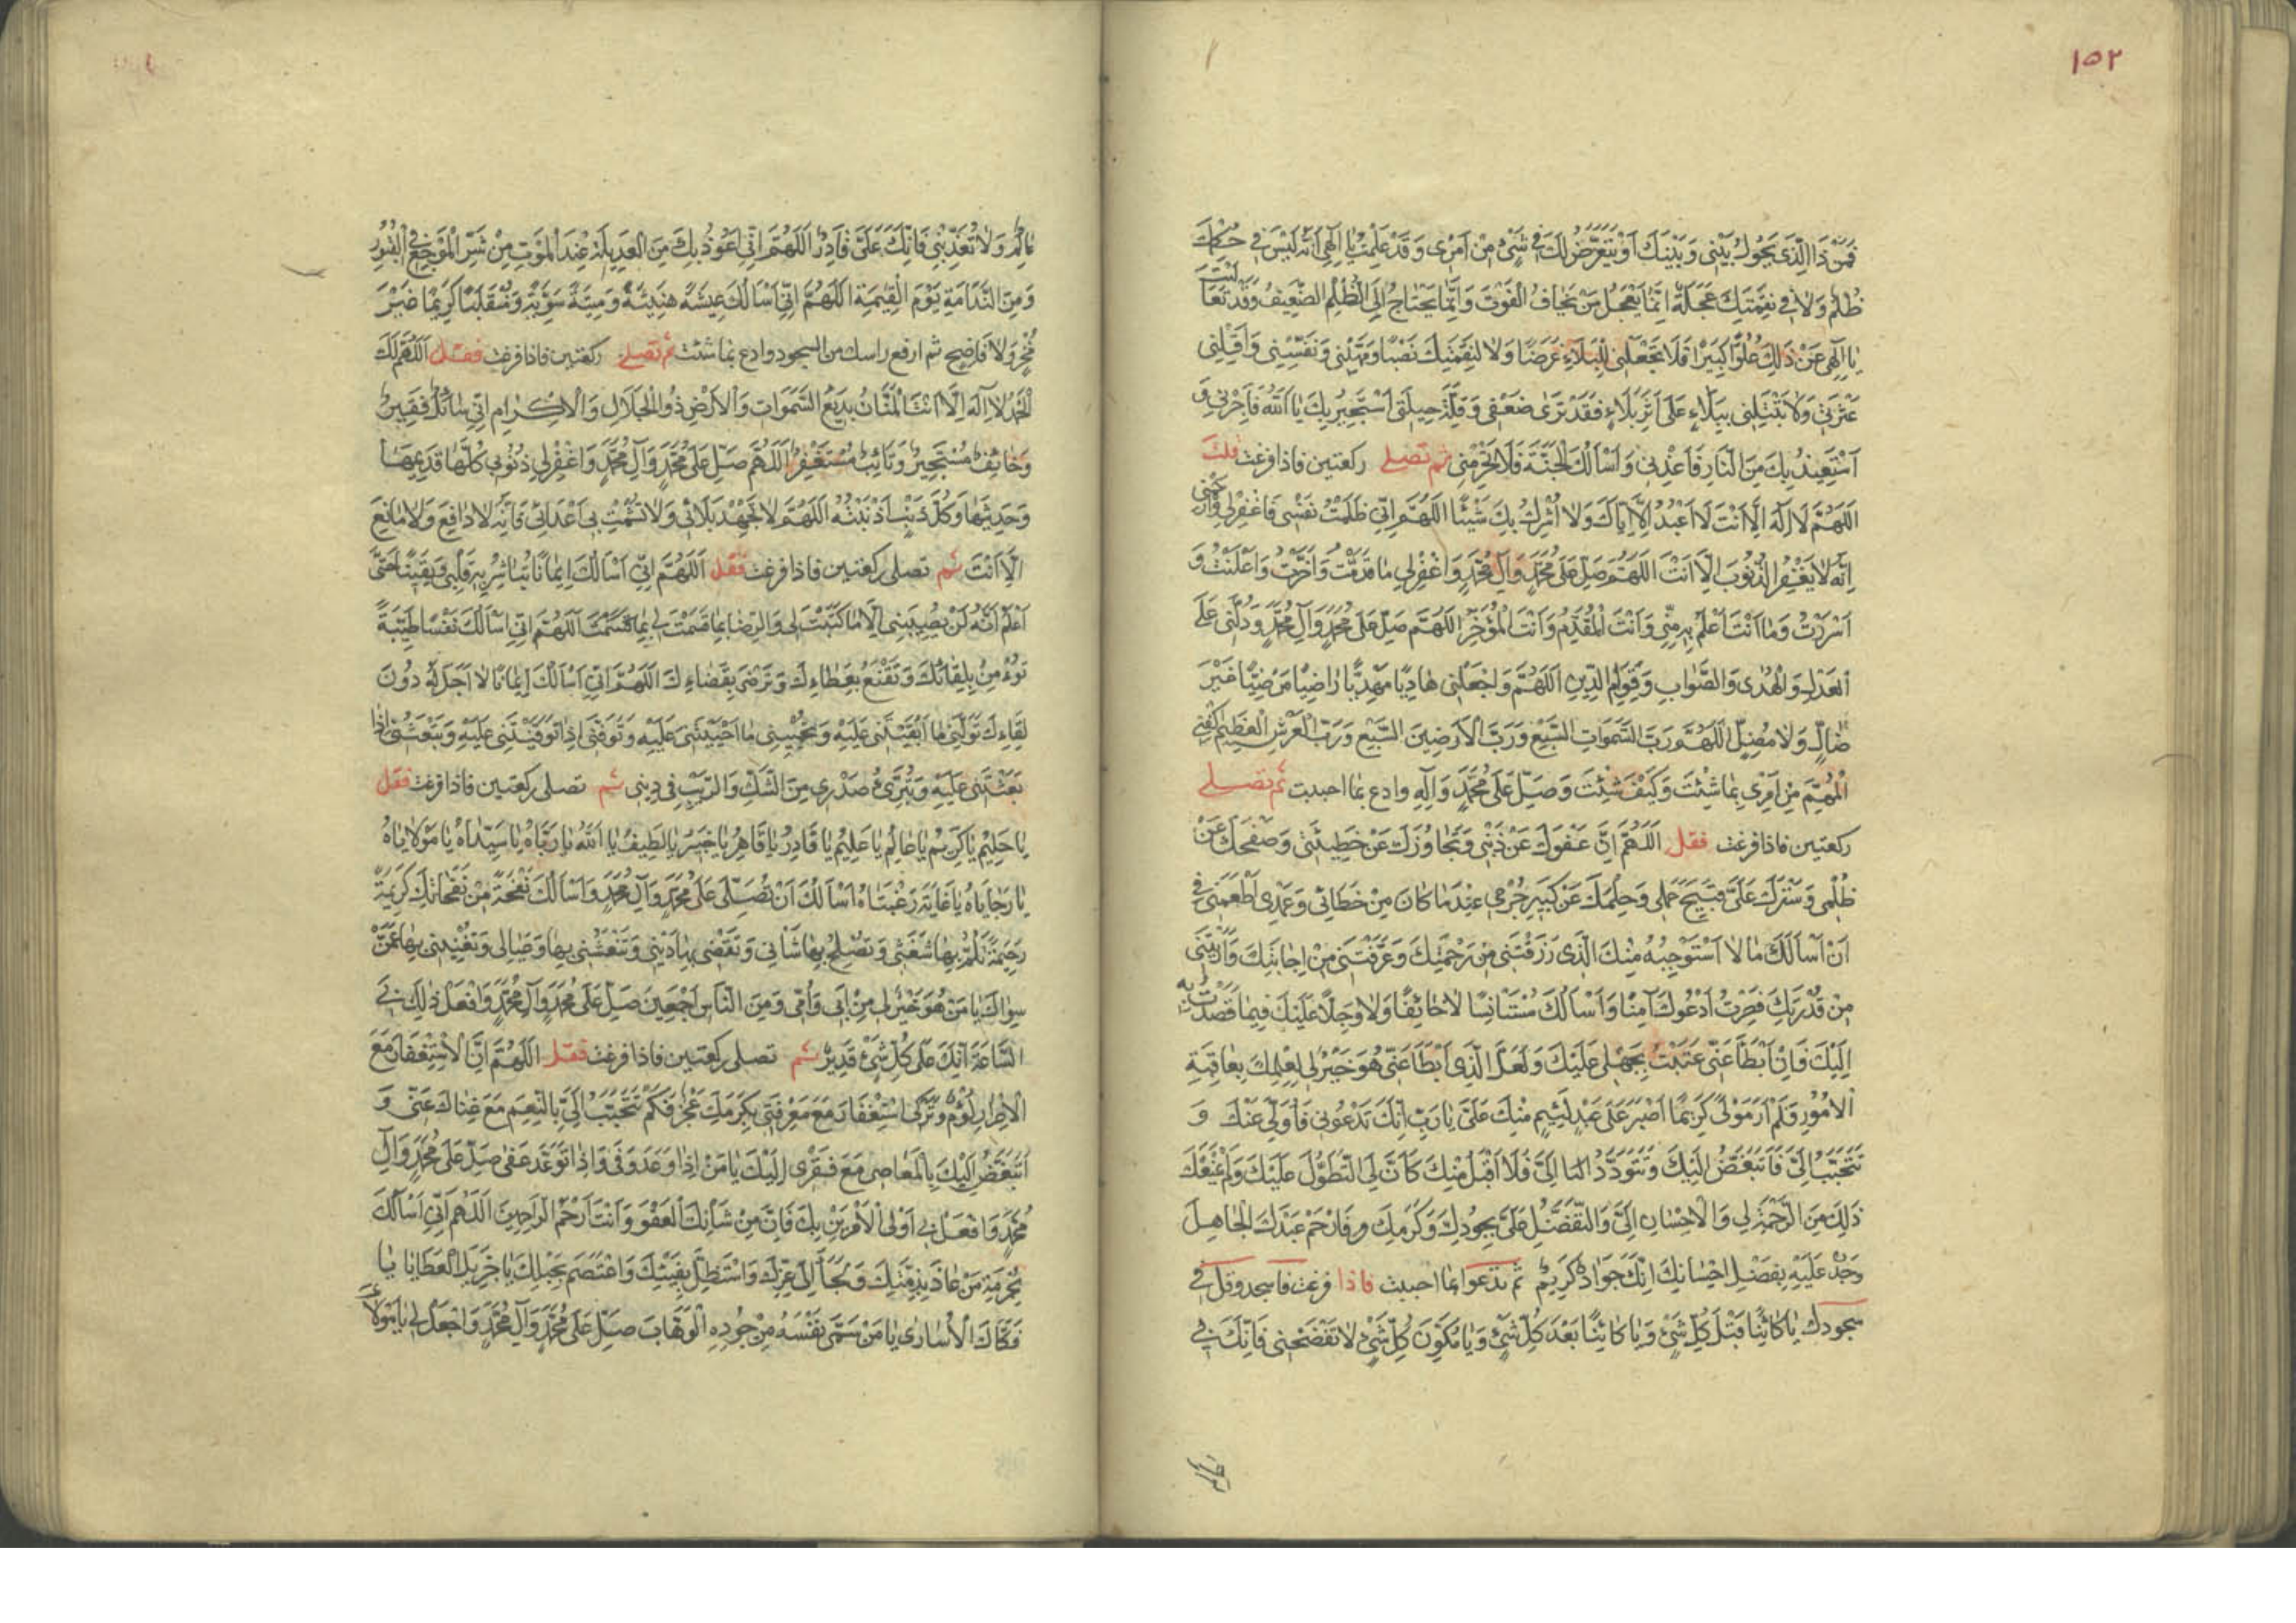 ١٥٢
فَمَنْ ذَا الَّذِي يَحُولُ بَيْنِي وَبَيْنَكَ اَوْ يَتَعَرَّضُ لَكَ فِي شَيْءٍ مِنْ اَمْرِي وَقَدْ عَلِمْتُ يَا اِلٰهِي اَنَّهُ لَيْسَ فِي حُكْمِكَ
ظُلْمٌ وَلَا فِي نِقْمَتِكَ عَجَلَةٌ اِنَّمَا يَعْجَلُ مَنْ يَخَافُ الْفَوْتَ وَاِنَّمَا يَحْتَاجُ اِلَى الظُّلْمِ الضَّعِيفُ وَقَدْ تَعَالَيْتَ
يَا اِلٰهِي عَنْ ذٰلِكَ عُلُوًّا كَبِيرًا فَلَا تَجْعَلْنِي لِلْبَلَاءِ غَرَضًا وَلَا لِنِقْمَتِكَ نَصْبًا وَمَهِّلْنِي وَنَفِّسْنِي وَاَقِلْنِي
عَثْرَتِي وَلَا تَبْتَلِيَنِّي بِبَلَاءٍ عَلَى اَثَرِ بَلَاءٍ فَقَدْ تَرَى ضَعْفِي وَقِلَّةَ حِيلَتِي اَسْتَجِيرُ بِكَ يَا اَللّٰهُ فَاَجِرْنِي وَ
اَسْتَعِيذُ بِكَ مِنَ النَّارِ فَاَعِذْنِي وَاَسْاَلُكَ الْجَنَّةَ فَلَا تَحْرِمْنِي ثم تصلي ركعتين فاذا فرغت قلت
اَللّٰهُمَّ لَا اِلٰهَ اِلَّا اَنْتَ لَا اَعْبُدُ اِلَّا اِيَّاكَ وَلَا اُشْرِكُ بِكَ شَيْئًا اَللّٰهُمَّ اِنِّي ظَلَمْتُ نَفْسِي فَاغْفِرْ لِي وَارْحَمْنِي
اِنَّهُ لَا يَغْفِرُ الذُّنُوبَ اِلَّا اَنْتَ اَللّٰهُمَّ صَلِّ عَلَى مُحَمَّدٍ وَآلِ مُحَمَّدٍ وَاغْفِرْ لِي مَا قَدَّمْتُ وَاَخَّرْتُ وَاَعْلَنْتُ وَ
اَسْرَرْتُ وَمَا اَنْتَ اَعْلَمُ بِهِ مِنِّي وَاَنْتَ الْمُقَدِّمُ وَاَنْتَ الْمُؤَخِّرُ اَللّٰهُمَّ صَلِّ عَلَى مُحَمَّدٍ وَآلِ مُحَمَّدٍ وَدُلَّنِي عَلَى
الْعَدْلِ وَالْهُدَى وَالصَّوَابِ وَقِوَامِ الدِّينِ اَللّٰهُمَّ وَاجْعَلْنِي هَادِيًا مَهْدِيًّا رَاضِيًا مَرْضِيًّا غَيْرَ
ضَالٍّ وَلَا مُضِلٍّ اَللّٰهُمَّ رَبَّ السَّمٰوَاتِ السَّبْعِ وَرَبَّ الْاَرَضِينَ السَّبْعِ وَرَبَّ الْعَرْشِ الْعَظِيمِ اكْفِنِي
الْمُهِمَّ مِنْ اَمْرِي بِمَا شِئْتَ وَكَيْفَ شِئْتَ وَصَلِّ عَلَى مُحَمَّدٍ وَآلِهِ وادع بما احببت ثم تصلي
ركعتين فاذا فرغت فقل اَللّٰهُمَّ اِنَّ عَفْوَكَ عَنْ ذَنْبِي وَتَجَاوُزَكَ عَنْ خَطِيئَتِي وَصَفْحَكَ عَنْ
ظُلْمِي وَسَتْرَكَ عَلَى قَبِيحِ عَمَلِي وَحِلْمَكَ عَنْ كَبِيرِ جُرْمِي عِنْدَ مَا كَانَ مِنْ خَطَائِي وَعَمْدِي اَطْمَعَنِي فِي
اَنْ اَسْاَلَكَ مَا لَا اَسْتَوْجِبُهُ مِنْكَ الَّذِي رَزَقْتَنِي مِنْ رَحْمَتِكَ وَعَرَّفْتَنِي مِنْ اِجَابَتِكَ وَاَرَيْتَنِي
مِنْ قُدْرَتِكَ فَصِرْتُ اَدْعُوكَ آمِنًا وَاَسْاَلُكَ مُسْتَانِسًا لَا خَائِفًا وَلَا وَجِلًا عَلَيْكَ فِيمَا قَصَدْتُ بِهِ
اِلَيْكَ فَاِنْ اَبْطَاَ عَنِّي عَتَبْتُ بِجَهْلِي عَلَيْكَ وَلَعَلَّ الَّذِي اَبْطَاَ عَنِّي هُوَ خَيْرٌ لِي لِعِلْمِكَ بِعَاقِبَةِ
الْاُمُورِ فَلَمْ اَرَ مَوْلًى كَرِيمًا اَصْبَرَ عَلَى عَبْدٍ لَئِيمٍ مِنْكَ عَلَيَّ يَا رَبِّ اِنَّكَ تَدْعُونِي فَاُوَلِّي عَنْكَ وَ
تَتَحَبَّبُ اِلَيَّ فَاَتَبَغَّضُ اِلَيْكَ وَتَتَوَدَّدُ اِلَيَّ فَلَا اَقْبَلُ مِنْكَ كَاَنَّ لِيَ التَّطَوُّلَ عَلَيْكَ وَلَمْ يَمْنَعْكَ
ذٰلِكَ مِنَ الرَّحْمَةِ لِي وَالْاِحْسَانِ اِلَيَّ وَالتَّفَضُّلِ عَلَيَّ بِجُودِكَ وَكَرَمِكَ فَارْحَمْ عَبْدَكَ الْجَاهِلَ
وَجُدْ عَلَيْهِ بِفَضْلِ اِحْسَانِكَ اِنَّكَ جَوَادٌ كَرِيمٌ ثم تدعوا بما احببت فاذا فرغت فاسجد وقل في
سجودك يَا كَائِنًا قَبْلَ كُلِّ شَيْءٍ وَيَا كَائِنًا بَعْدَ كُلِّ شَيْءٍ وَيَا مُكَوِّنَ كُلِّ شَيْءٍ لَا تَفْضَحْنِي فَاِنَّكَ بِي
عَالِمٌ وَلَا تُعَذِّبْنِي فَاِنَّكَ عَلَيَّ قَادِرٌ اَللّٰهُمَّ اِنِّي اَعُوذُ بِكَ مِنَ الْعَدِيلَةِ عِنْدَ الْمَوْتِ مِنْ شَرِّ الْمَرْجِعِ فِي الْقُبُورِ
وَمِنَ النَّدَامَةِ يَوْمَ الْقِيٰمَةِ اَللّٰهُمَّ اِنِّي اَسْاَلُكَ عِيشَةً هَنِيئَةً وَمِيتَةً سَوِيَّةً وَمُنْقَلَبًا كَرِيمًا غَيْرَ
مُخْزٍ وَلَا فَاضِحٍ ثم ارفع راسك من السجود وادع بما شئت ثم تصلي ركعتين فاذا فرغت فقل اَللّٰهُمَّ لَكَ
الْحَمْدُ لَا اِلٰهَ اِلَّا اَنْتَ الْمَنَّانُ بَدِيعُ السَّمٰوَاتِ وَالْاَرْضِ ذُو الْجَلَالِ وَالْاِكْرَامِ اِنِّي سَائِلٌ فَقِيرٌ
وَخَائِفٌ مُسْتَجِيرٌ وَتَائِبٌ مُسْتَغْفِرٌ اَللّٰهُمَّ صَلِّ عَلَى مُحَمَّدٍ وَآلِ مُحَمَّدٍ وَاغْفِرْ لِي ذُنُوبِي كُلَّهَا قَدِيمَهَا
وَحَدِيثَهَا وَكُلَّ ذَنْبٍ اَذْنَبْتُهُ اَللّٰهُمَّ لَا تُجْهِدْ بَلَائِي وَلَا تُشْمِتْ بِي اَعْدَائِي فَاِنَّهُ لَا دَافِعَ وَلَا مَانِعَ
اِلَّا اَنْتَ ثم تصلي ركعتين فاذا فرغت فقل اَللّٰهُمَّ اِنِّي اَسْاَلُكَ اِيمَانًا تُبَاشِرُ بِهِ قَلْبِي وَيَقِينًا حَتَّى
اَعْلَمَ اَنَّهُ لَنْ يُصِيبَنِي اِلَّا مَا كَتَبْتَ لِي وَالرِّضَا بِمَا قَسَمْتَ لِي اَللّٰهُمَّ اِنِّي اَسْاَلُكَ نَفْسًا طَيِّبَةً
تُؤْمِنُ بِلِقَائِكَ وَتَقْنَعُ بِعَطَاءِكَ وَتَرْضَى بِقَضَاءِكَ اَللّٰهُمَّ اِنِّي اَسْاَلُكَ اِيمَانًا لَا اَجَلَ لَهُ دُونَ
لِقَاءِكَ تَوَلَّنِي مَا اَبْقَيْتَنِي عَلَيْهِ وَتُحْيِينِي مَا اَحْيَيْتَنِي عَلَيْهِ وَتَوَفَّنِي اِذَا تَوَفَّيْتَنِي عَلَيْهِ وَتَبْعَثُنِي اِذَا
بَعَثْتَنِي عَلَيْهِ وَتُبْرِئُ صَدْرِي مِنَ الشَّكِّ وَالرَّيْبِ فِي دِينِي ثم تصلي ركعتين فاذا فرغت فقل
يَا حَلِيمُ يَا كَرِيمُ يَا عَالِمُ يَا عَلِيمُ يَا قَادِرُ يَا قَاهِرُ يَا خَبِيرُ يَا لَطِيفُ يَا اَللّٰهُ يَا رَبَّاهُ يَا سَيِّدَاهُ يَا مَوْلَايَاهُ
يَا رَجَايَاهُ يَا غَايَةَ رَغْبَتَاهُ اَسْاَلُكَ اَنْ تُصَلِّيَ عَلَى مُحَمَّدٍ وَآلِ مُحَمَّدٍ وَاَسْاَلُكَ نَفْحَةً مِنْ نَفَحَاتِكَ كَرِيمَةً
رَحِيمَةً تَلُمُّ بِهَا شَعَثِي وَتُصْلِحُ بِهَا شَانِي وَتَقْضِي بِهَا دَيْنِي وَتَنْعَشُنِي بِهَا وَعِيَالِي وَتُغْنِينِي بِهَا عَمَّنْ
سِوَاكَ يَا مَنْ هُوَ خَيْرٌ لِي مِنْ اَبِي وَاُمِّي وَمِنَ النَّاسِ اَجْمَعِينَ صَلِّ عَلَى مُحَمَّدٍ وَآلِ مُحَمَّدٍ وَافْعَلْ ذٰلِكَ بِي
السَّاعَةَ اِنَّكَ عَلَى كُلِّ شَيْءٍ قَدِيرٌ ثم تصلي ركعتين فاذا فرغت فقل اَللّٰهُمَّ اِنَّ الْاِسْتِغْفَارَ مَعَ
الْاِصْرَارِ لُؤْمٌ وَتَرْكِي اسْتِغْفَارَ مَعَ مَعْرِفَتِي بِكَرَمِكَ عَجْزٌ فَكَمْ تَتَحَبَّبُ اِلَيَّ بِالنِّعَمِ مَعَ غِنَاكَ عَنِّي وَ
اَتَبَغَّضُ اِلَيْكَ بِالْمَعَاصِي مَعَ فَقْرِي اِلَيْكَ يَا مَنْ اِذَا وَعَدَ وَفَى وَاِذَا تَوَعَّدَ عَفَى صَلِّ عَلَى مُحَمَّدٍ وَآلِ
مُحَمَّدٍ وَافْعَلْ بِي اَوْلَى الْاَمْرَيْنِ بِكَ فَاِنَّ مِنْ شَاْنِكَ الْعَفْوَ وَاَنْتَ اَرْحَمُ الرَّاحِمِينَ اَللّٰهُمَّ اِنِّي اَسْاَلُكَ
بِحُرْمَةِ مَنْ عَاذَ بِذِمَّتِكَ وَلَجَاَ اِلَى عِزِّكَ وَاسْتَظَلَّ بِفَيْئِكَ وَاعْتَصَمَ بِحَبْلِكَ يَا جَزِيلَ الْعَطَايَا يَا
فَكَّاكَ الْاُسَارَى يَا مَنْ سَمَّى نَفْسَهُ مِنْ جُودِهِ الْوَهَّابَ صَلِّ عَلَى مُحَمَّدٍ وَآلِ مُحَمَّدٍ وَاجْعَلْ لِي يَا مَوْلَايَ